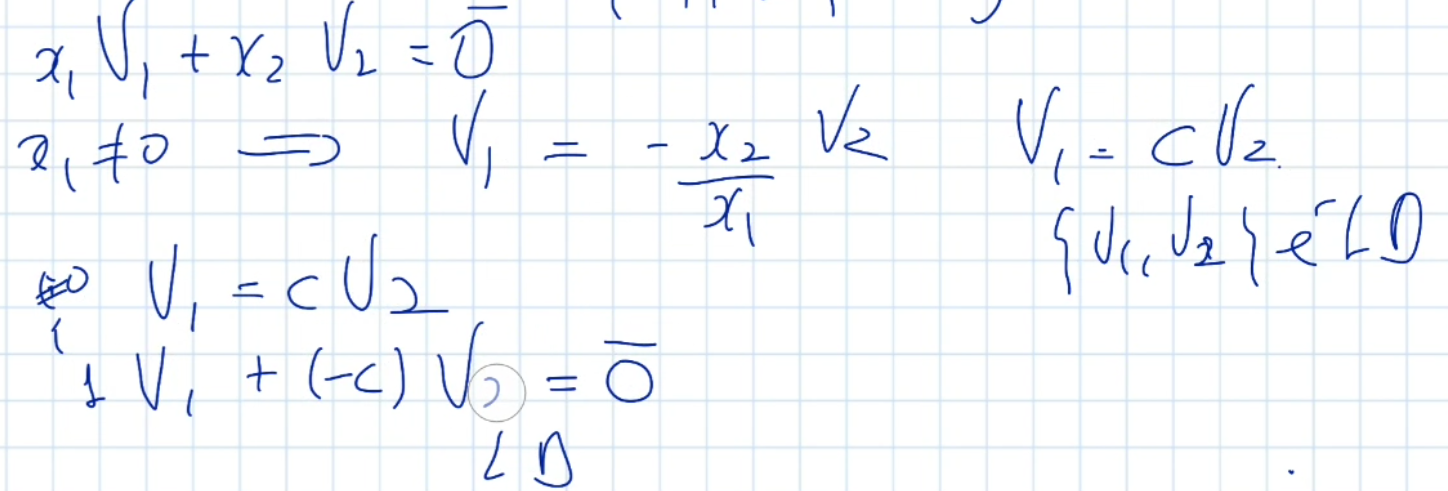 x₁ V₁ + x₂ V₂ = 0̅
x₁ ≠ 0 ⟹ V₁ = - x₂/x₁ V₂
V₁ = c V₂
{V₁, V₂} é LD
V₁ = c V₂
1 V₁ + (-c) V₂ = 0̅
LD